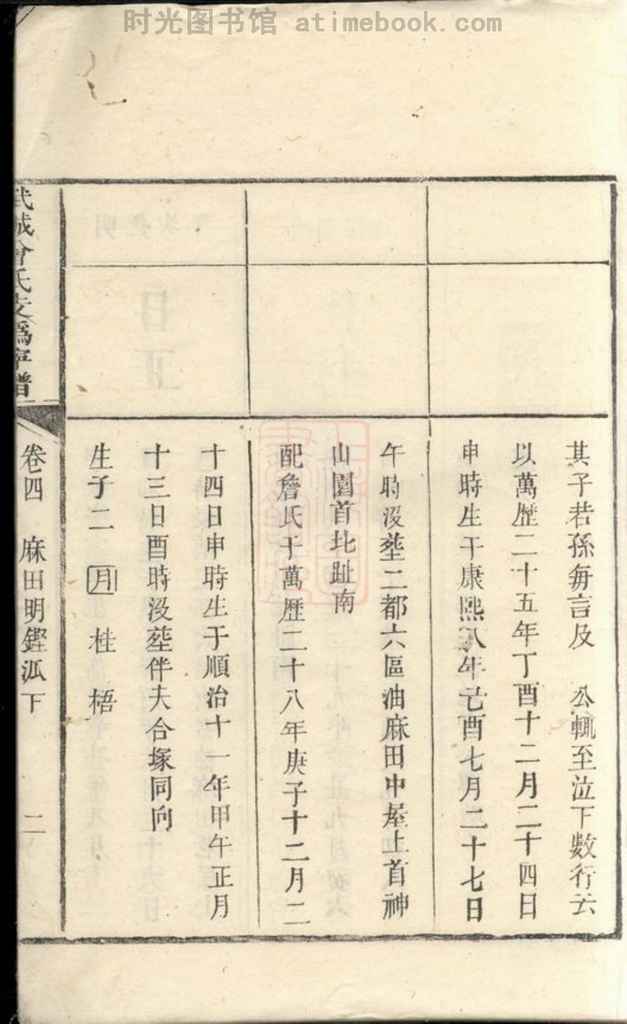 时光图书馆 atimebook.com
其子若孫每言及 公輒至泣下數行云
以萬歷二十五年丁酉十二月二十四日
申時生于康熙八年己酉七月二十七日
午時没塟二都六區油麻田中屋上首神
山園首北趾南
配詹氏于萬歷二十八年庚子十二月二
十四日申時生于順治十一年甲午正月
十三日酉時没塟伴夫合塚同向
生子二 月 桂 梧
武城曾氏支爲寧譜
卷四 麻田明鏗派下 二